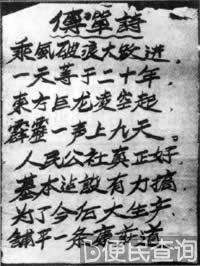 傳單詩
乘風破浪大跃进.
一天等于二十年.
東方巨龙凌空起
霹靂一声上九天。
人民公社真正好
基本达設有力搞.
为了今后大生产.
鋪平一条康莊道
便民查询